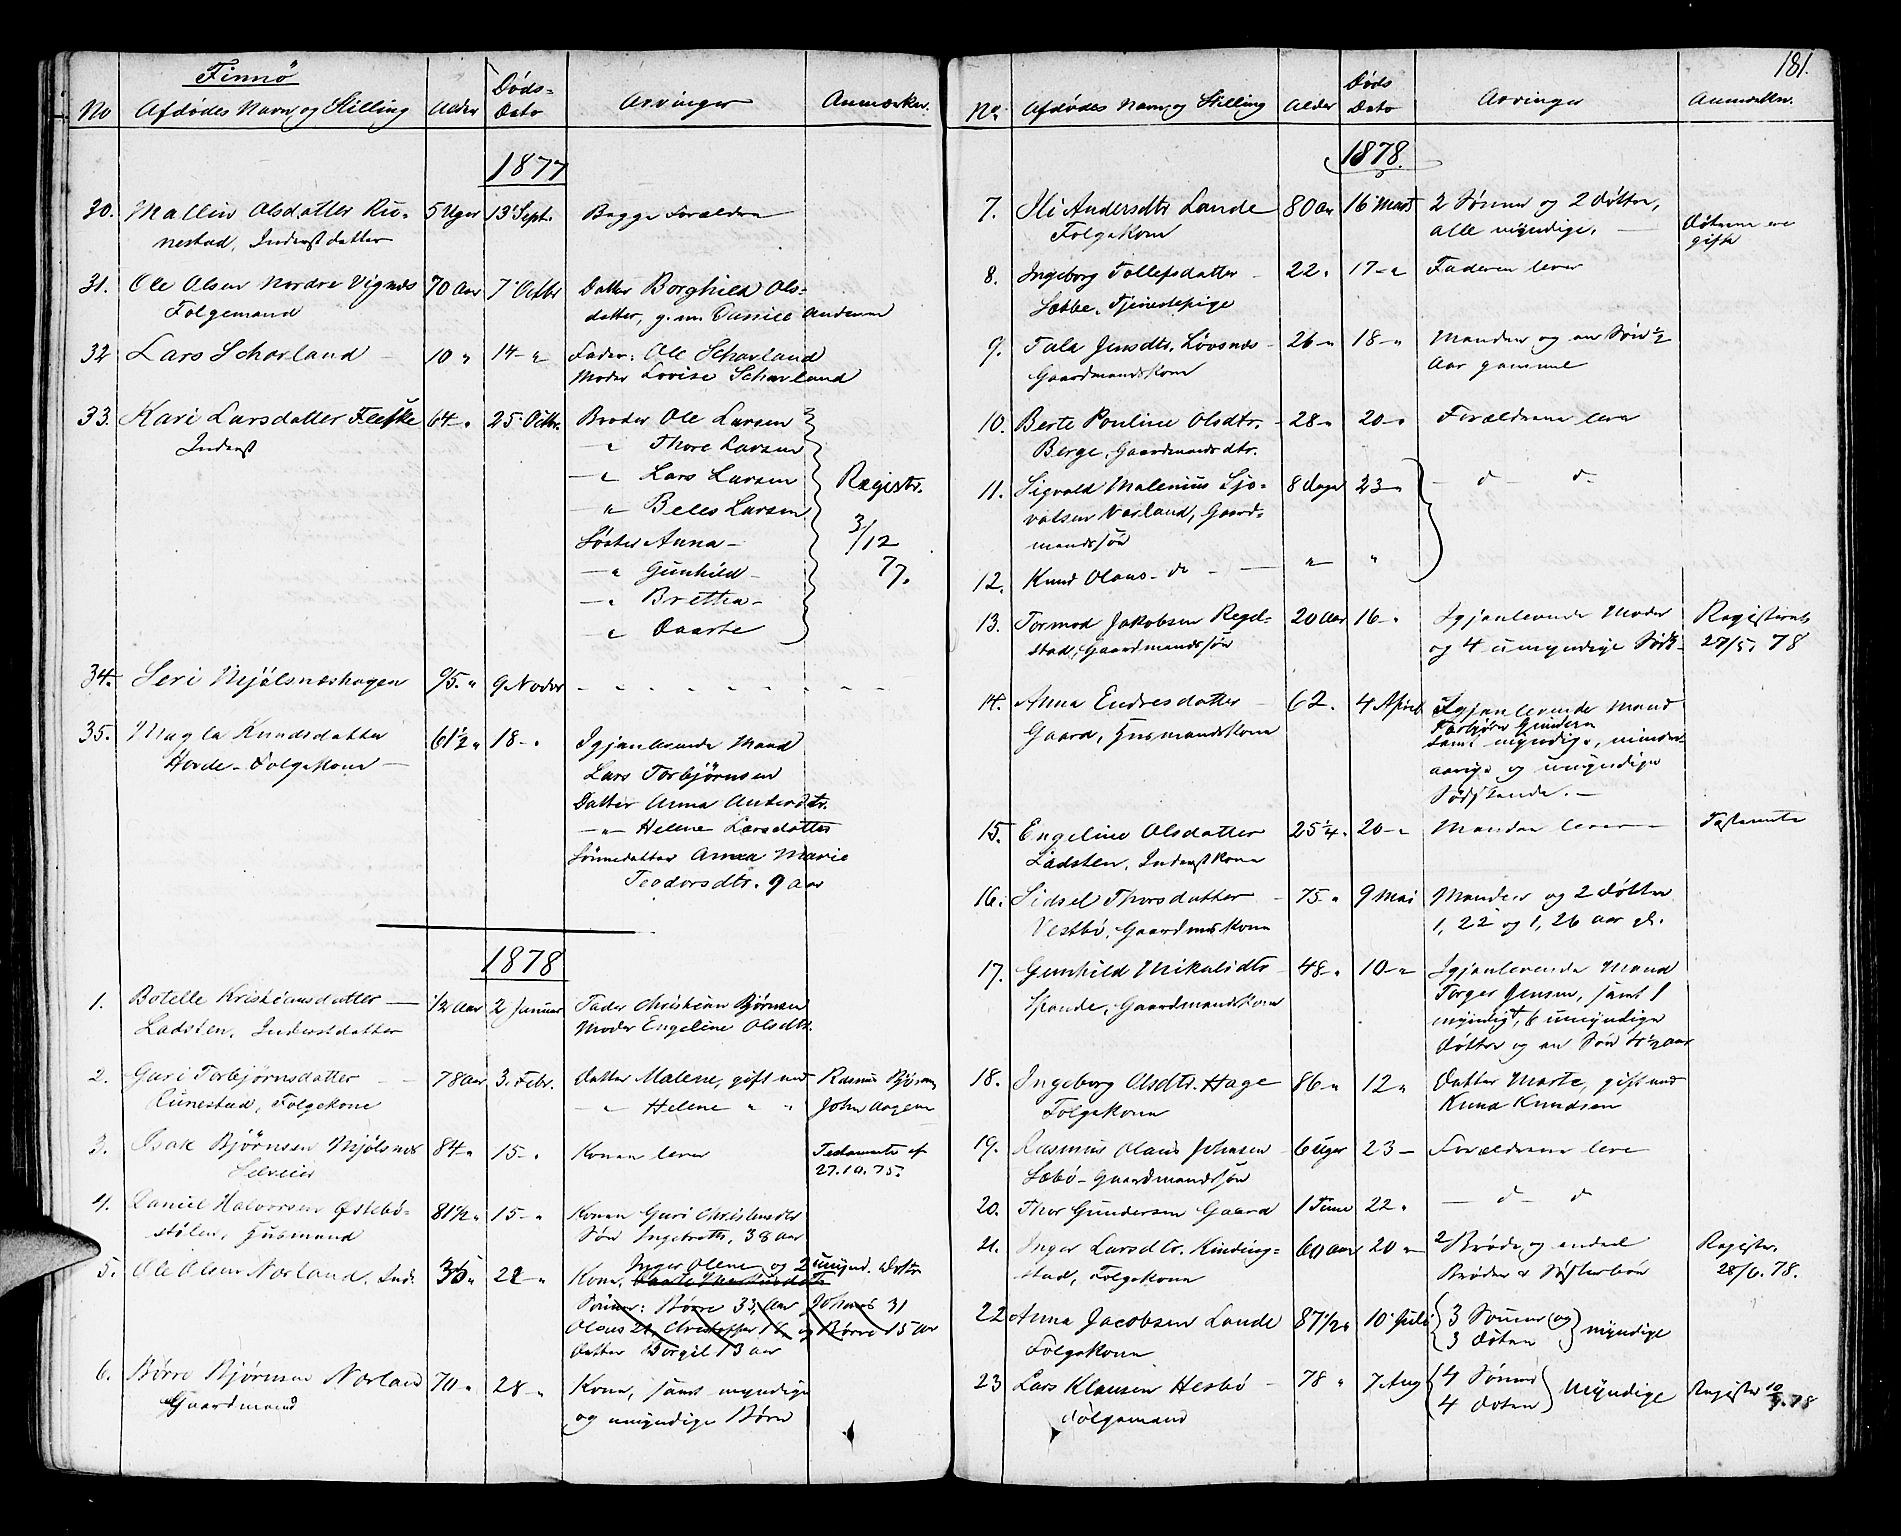 Finnö
No Afdödes Navn og Stilling Alder Döds-Dato Arvinger Anmærkn.
1877
30. Mallin Olsdatter Ru- 5 Uger 13 Sept. Begge Forældre
nestad, Inderstdatter
31. Ole Olsen Nordre Vignæs 70 Aar 7 Octbr Datter Borghild Ols-
Folgemand datter, g. m. Andersen
32 Lars Scharland 10 " 14 - " Fader: Ole Scharland
Moder Lovise Scharland
33. Kari Larsdatter Fleske 64 - " 25 Octbr. Broder Ole Larsen
Inderst - " Thore Larsen
- " Lars Larsen Registr.
- " Larsen 3/12
Söster Anna - 77.
- " Gunhild -
- " Brettha -
- "
34. Seri Mjölsneshagen 9/5. " 9 Novbr - " - " - "
35. Magla Knudsdatter 61 1/2 " 18 - " Igjenlevende Mand
Horde - Folgekone - Lars Torbjörnsen
Datter Anna
- " - Helene Larsdatter
Sönnedatter Anna Marie
Teodorsdtr. 9 aar
1878
1. Botelle Kristiansdatter 1/2 Aar 2 Januar Fader Christian Björnsen
Ladsten, Inderstdatter Moder Engeline Olsdtr.
2. Guri Torbjörnsdatter 78 Aar 3. Febr. Datter Malene, gift med Rasmus Björnsen
Runestad, Folgekone - " Helene " " John Aagesen
3. Isak Björnsen Mjölsnes 84 - " 15 - " Konen lever Testamente af
Selveier 27.10.75.
4. Daniel Halvorsen Östebö- 81 1/2 " 15 - " Konen Guri Christensdtr
stölen, Husmand Sön Ingebreth, 38 aar
5. Ole Olsen Norland. Ind. 36 " 22 - " Kone, Inger Olene og 2 umynd. Dötre
Sönner: Börre 33 Aar Johans 31
Olaus 21, Christoffer 16 og Börre 15 Aar
Datter Borgil 13 aar
6. Börre Björnsen Norland 70 " 28 - " Kone, samt myndige
Gaardmand og umyndige Börn
181.
No. Afdödes Navn og Stilling Alder Döds Dato Arvinger Anmærkn.
1878.
7. Ili Andersdtr Lande 80 Aar 16 Marts 2 Sönner og 2 döttre, Döttrene ere
Folgekone alle myndige. gifte
8. Ingeborg Tollefsdatter 22 " 17 - " Faderen lever
Sæbbe, Tjenestepige
9. Tala Jensdtr. Lövsnæs 26 - " 18 - " Manden og en Sön 1/2
Gaardmandskone Aar gammel
10. Berte Pouline Olsdtr. 28 - " 20 - " Forældrene leve
Berge, Gaardmandsdtr.
11. Sigvald Malenius Sjo- 8 Dage 23 - " - d - d -
vatsen Varland, Gaard-
mandssön
12. Knud Olaus - do - " - "
13. Tormod Jakobsen Regel- 20 Aar 16 - " Igjenlevende Moder Registreret
stad, Gaardmandssön og 4 umyndige Södsk- 27/5. 78
14. Anna Endresdatter 62. 4 April Igjenlevende Mand
Gaard, Husmandskone Torbjörn Gundersen
samt myndige, minder-
aarige og umyndige
Södskende. -
15. Engeline Olsdatter 25 1/4 " 20 - " Manden lever - Testamente
Ladsten, Inderstkone
16. Sidsel Thorsdatter 75 - " 9 Mai Manden og 2 Döttre
Vestbö, Gaardmskone 1, 22 og 1, 26 aar gl.
17. Gunhild Mikalsdtr 48 - " 10 - " Igjenlevende Mand
Spande, Gaardmandskone Torger Jensen, samt 1
myndig, 6 umyndige
Döttre og en Sön 4 1/2 aar
18. Ingeborg Olsdtr. Hage 86 - " 12 " Datter Marte, gift med
Folgekone Knud Knudsen
19. Rasmus Olaus Johnsen 6 Uger 23 - Forældrene leve
Sæbö - Gaardmandssön
20. Thor Gundersen Gaard 1 Time 22 " - d - d
21. Inger Larsdtr. Kinding- 60 Aar 20 - 2 Brödre og endeel Register.
stad, Folgekone Bröder & Sösterbörn 28/6. 78.
22 Anna Jacobsen Lande 87 1/2 " 10 Juli 3 Sönner (og) myndige
Folgekone 3 Döttre
23 Lars Klausen Hesbö 78 " 7 Aug 4 Sönner Myndige Register 10/9.78
Folgemand 4 Döttre